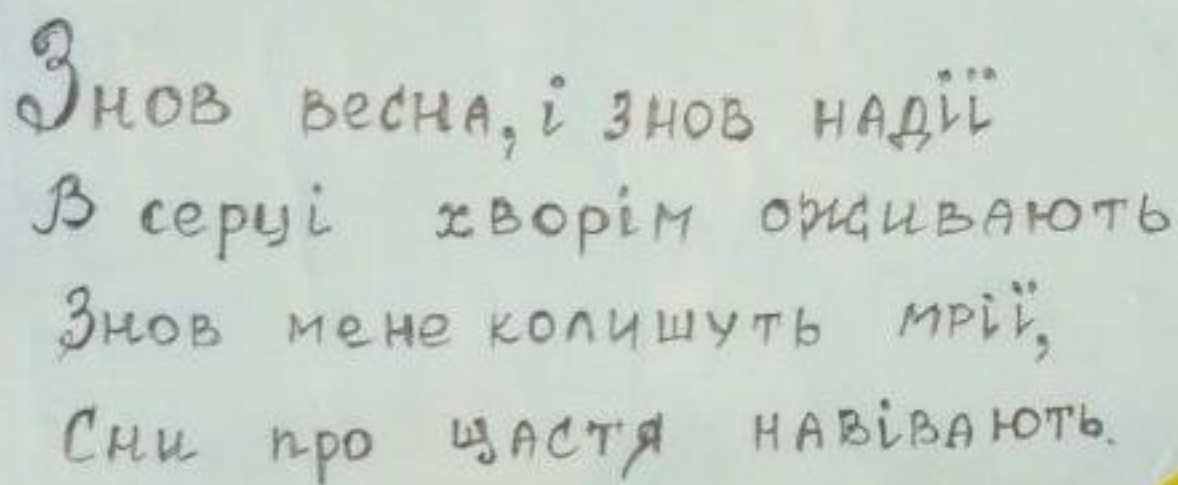 Знов весна, і знов надії
В серці хворім оживають
Знов мене колишуть мрії,
Сни про щастя навівають.